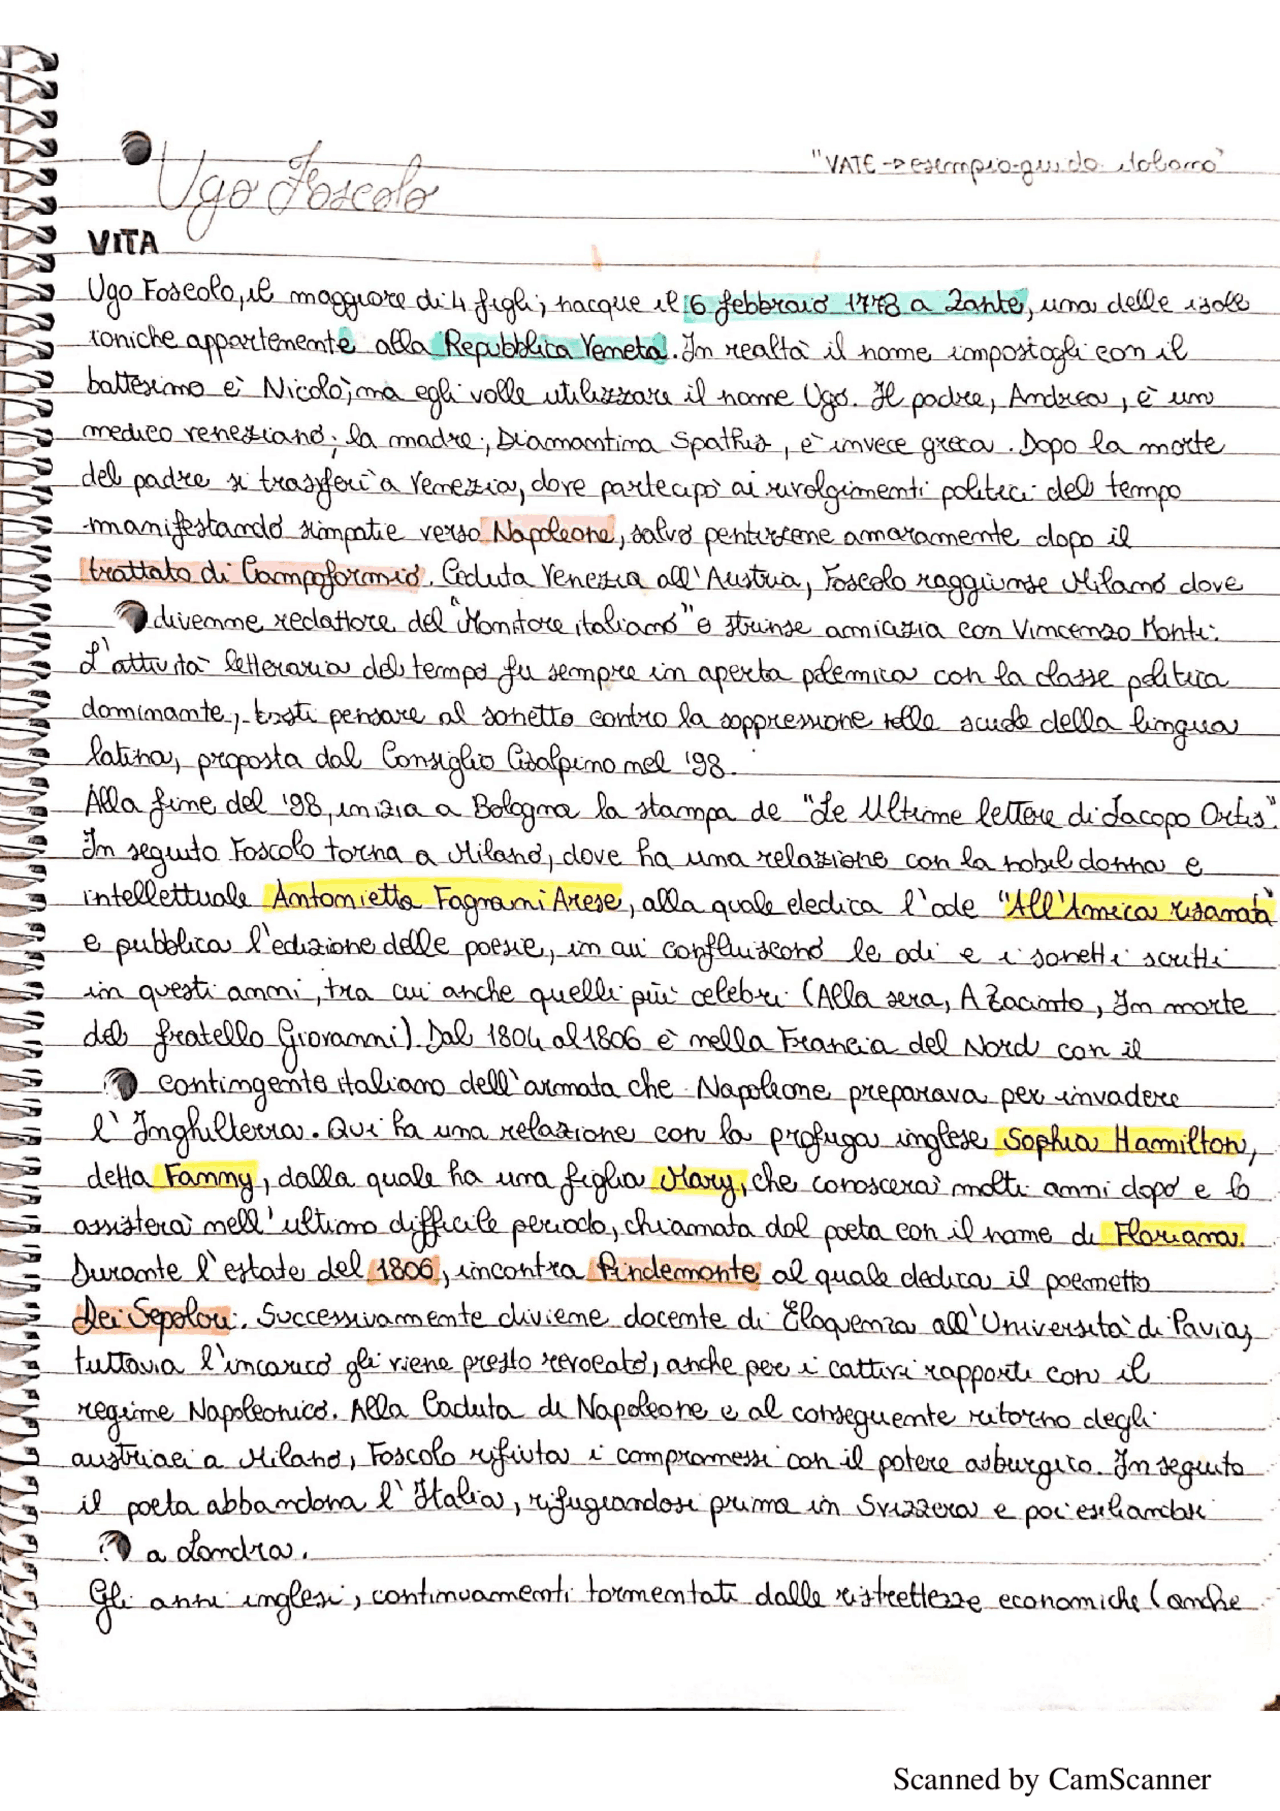 Ugo Foscolo
"VATE → esempio-guida italiano"
VITA
Ugo Foscolo, il maggiore di 4 figli, nacque il 6 febbraio 1778 a Zante, una delle isole
ioniche appartenente alla Repubblica Veneta. In realtà il nome impostogli con il
battesimo è Nicolò, ma egli volle utilizzare il nome Ugo. Il padre, Andrea, è un
medico veneziano; la madre, Diamantina Spathis, è invece greca. Dopo la morte
del padre si trasferì a Venezia, dove partecipò ai rivolgimenti politici del tempo
manifestando simpatie verso Napoleone, salvo pentirsene amaramente dopo il
trattato di Campoformio. Ceduta Venezia all'Austria, Foscolo raggiunse Milano dove
divenne redattore del "Monitore italiano" e strinse amicizia con Vincenzo Monti.
L'attività letteraria del tempo fu sempre in aperta polemica con la classe politica
dominante, basti pensare al sonetto contro la soppressione nelle scuole della lingua
latina, proposta dal Consiglio Cisalpino nel '98.
Alla fine del '98, inizia a Bologna la stampa de "Le Ultime lettere di Jacopo Ortis".
In seguito Foscolo torna a Milano, dove ha una relazione con la nobildonna e
intellettuale Antonietta Fagnani Arese, alla quale dedica l'ode "All'Amica risanata"
e pubblica l'edizione delle poesie, in cui confluiscono le odi e i sonetti scritti
in questi anni, tra cui anche quelli più celebri (Alla sera, A Zacinto, In morte
del fratello Giovanni). Dal 1804 al 1806 è nella Francia del Nord con il
contingente italiano dell'armata che Napoleone preparava per invadere
l'Inghilterra. Qui ha una relazione con la profuga inglese Sophia Hamilton,
detta Fanny, dalla quale ha una figlia Mary, che conoscerà molti anni dopo e lo
assisterà nell'ultimo difficile periodo, chiamata dal poeta con il nome di Floriana.
Durante l'estate del 1806, incontra Pindemonte al quale dedica il poemetto
Dei Sepolcri. Successivamente diviene docente di Eloquenza all'Università di Pavia,
tuttavia l'incarico gli viene presto revocato, anche per i cattivi rapporti con il
regime Napoleonico. Alla Caduta di Napoleone e al conseguente ritorno degli
austriaci a Milano, Foscolo rifiuta i compromessi con il potere asburgico. In seguito
il poeta abbandona l'Italia, rifugiandosi prima in Svizzera e poi esiliandosi
a Londra.
Gli anni inglesi, continuamenti tormentati dalle ristrettezze economiche (anche
Scanned by CamScanner